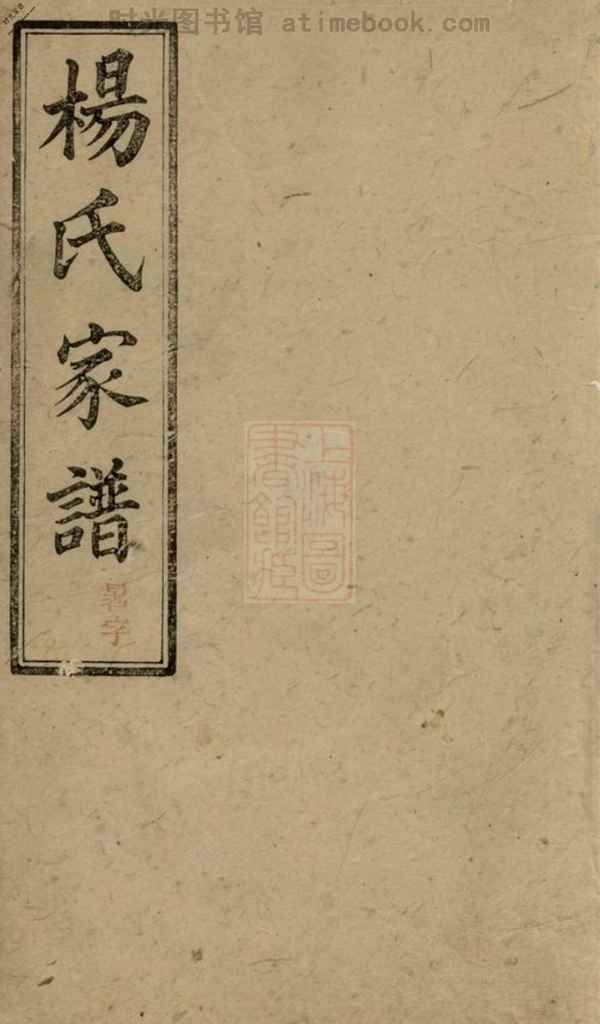 时光图书馆 atimebook.com
楊氏家譜
暑字
上海圖
書館藏